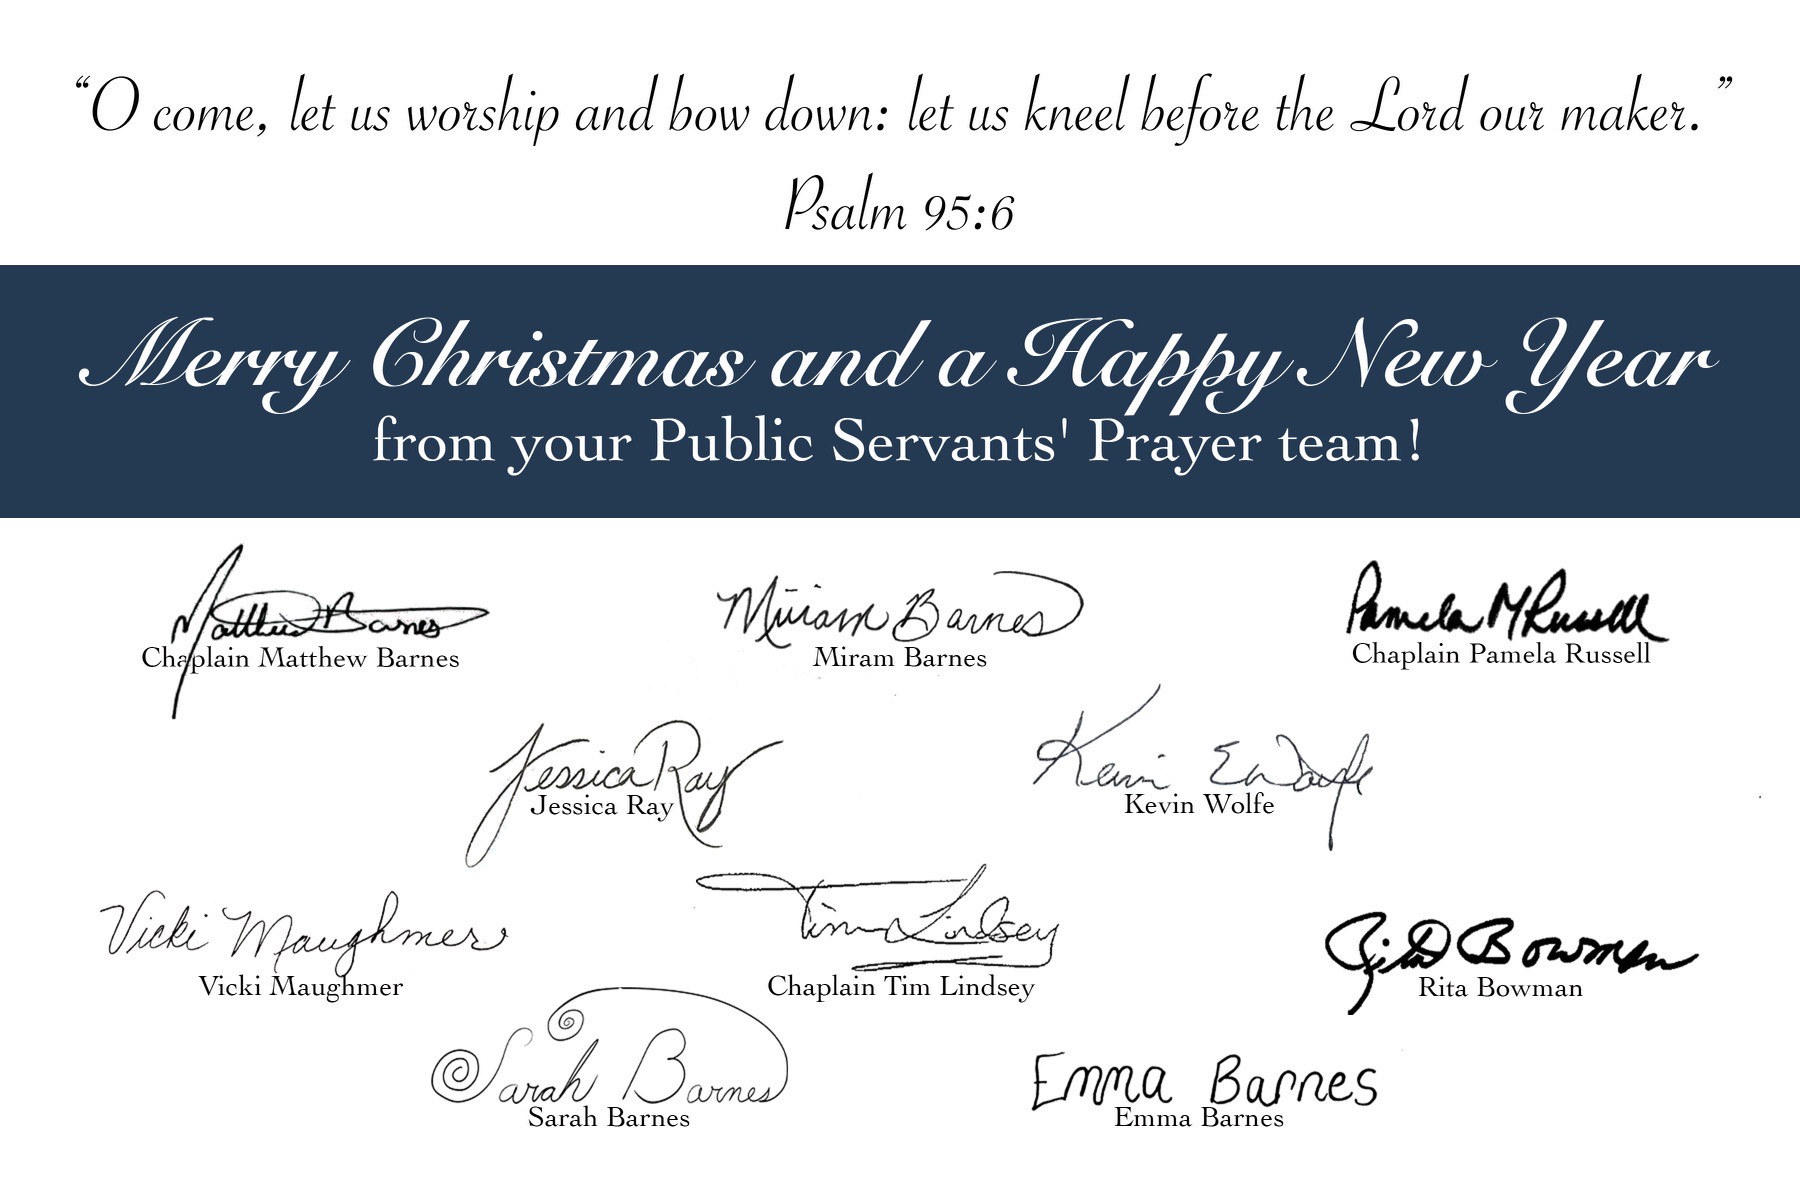 “O come, let us worship and bow down: let us kneel before the Lord our maker.”
Psalm 95:6
Merry Christmas and a Happy New Year
from your Public Servants' Prayer team!
Matthew Barnes
Miriam Barnes
Pamela M Russell
Chaplain Matthew Barnes
Miram Barnes
Chaplain Pamela Russell
Jessica Ray
Kevin E Wolfe
Jessica Ray
Kevin Wolfe
Vicki Maughmer
Tim Lindsey
Rita Bowman
Vicki Maughmer
Chaplain Tim Lindsey
Rita Bowman
Sarah Barnes
Emma Barnes
Sarah Barnes
Emma Barnes